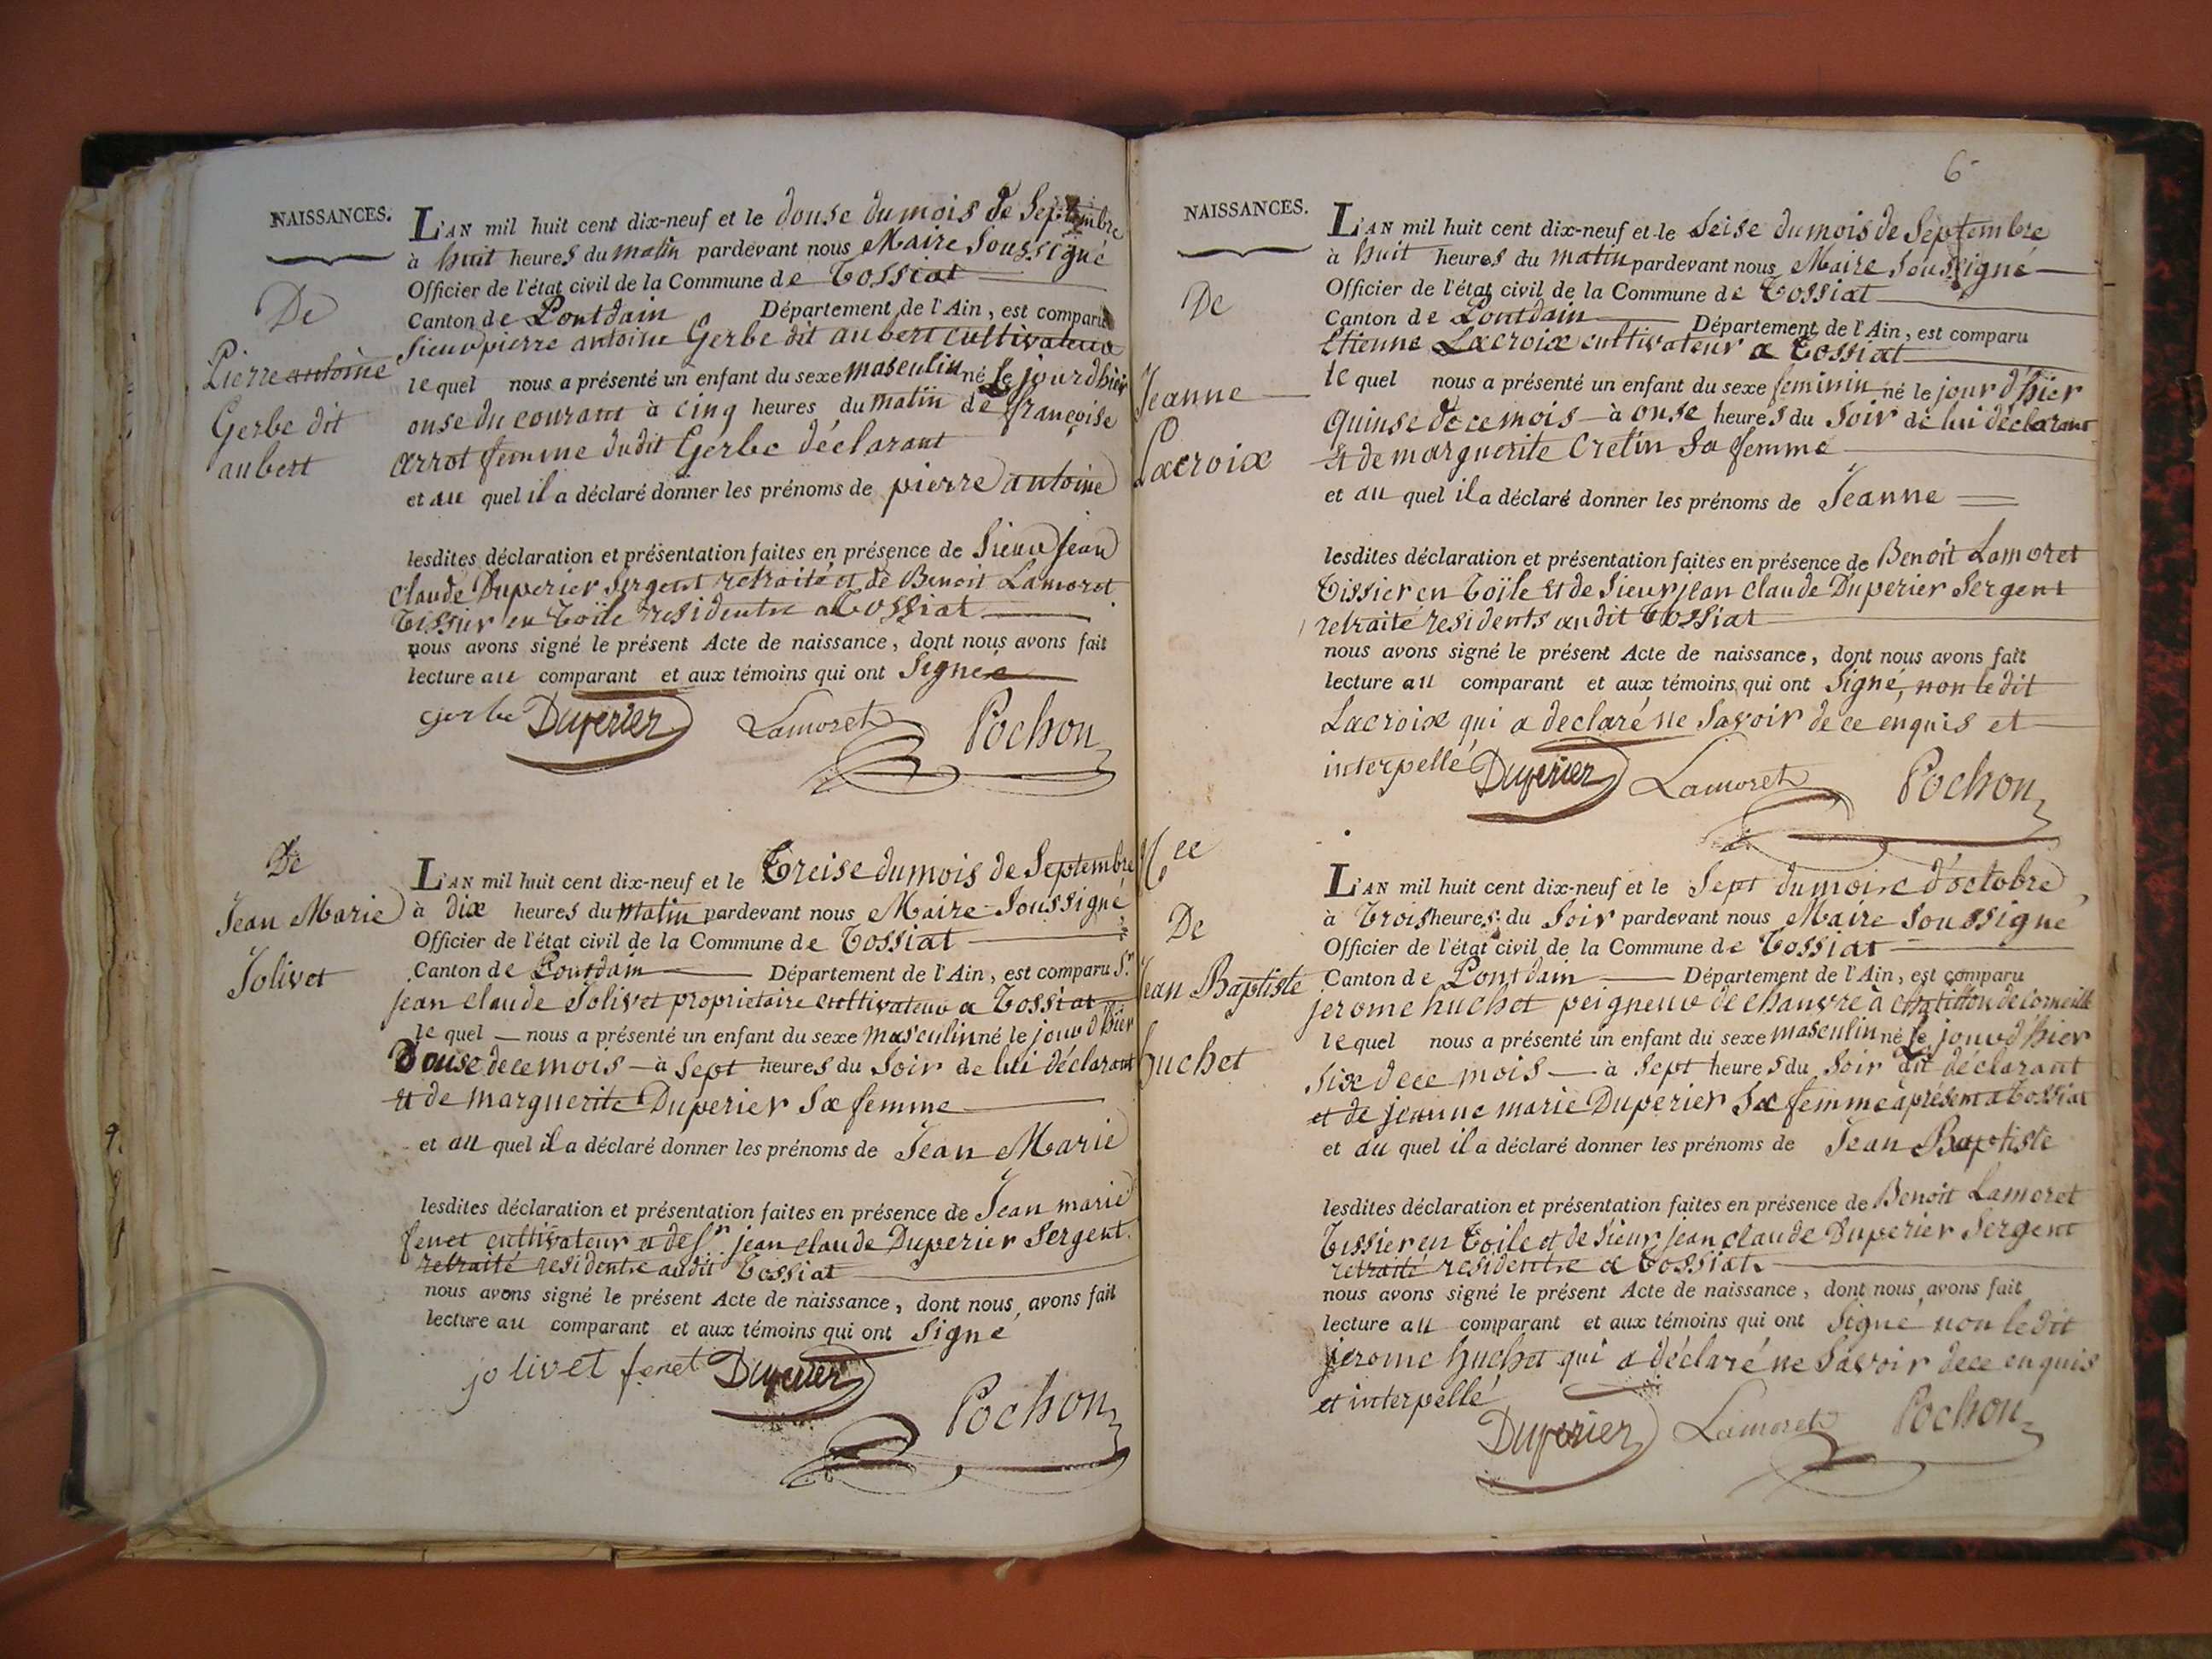 NAISSANCES.
De
Pierre antoine
Gerbe dit
aubert
L'AN mil huit cent dix-neuf et le douse du mois de Septembre
à huit heures du matin pardevant nous Maire Soussigné
Officier de l'état civil de la Commune de Tossiat
Canton de Pontdain Département de l'Ain, est comparu
Sieur pierre antoine Gerbe dit aubert cultivateur
lequel nous a présenté un enfant du sexe masculin né le jourd'hier
onse du courant à cinq heures du matin de françoise
arrot femme dudit Gerbe déclarant
et au quel il a déclaré donner les prénoms de pierre antoine
lesdites déclaration et présentation faites en présence de Sieur jean
claude Duperier Sergent retraité et de Benoit Lamoret
Tissier en Toile residents a Tossiat
nous avons signé le présent Acte de naissance, dont nous avons fait
lecture au comparant et aux témoins qui ont Signé
gerbe Duperier Lamoret Pochon
De
Jean Marie
Jolivet
L'AN mil huit cent dix-neuf et le Treise du mois de Septembre
à dix heures du matin pardevant nous Maire Soussigné
Officier de l'état civil de la Commune de Tossiat
Canton de Pontdain Département de l'Ain, est comparu Sr
jean claude Jolivet proprietaire cultivateur a Tossiat
lequel nous a présenté un enfant du sexe masculin né le jourd'hier
Douse de ce mois à Sept heures du Soir de lui déclarant
et de marguerite Duperier Sa femme
et au quel il a déclaré donner les prénoms de Jean Marie
lesdites déclaration et présentation faites en présence de Jean marie
fenet cultivateur et de Sr jean claude Duperier Sergent
retraité residents audit Tossiat
nous avons signé le présent Acte de naissance, dont nous avons fait
lecture au comparant et aux témoins qui ont Signé
jolivet fenet Duperier
Pochon
6
NAISSANCES.
De
Jeanne
Lacroix
L'AN mil huit cent dix-neuf et le Seise du mois de Septembre
à huit heures du matin pardevant nous Maire Soussigné
Officier de l'état civil de la Commune de Tossiat
Canton de Pontdain Département de l'Ain, est comparu
Etienne Lacroix cultivateur a Tossiat
lequel nous a présenté un enfant du sexe feminin né le jour d'hier
quinse de ce mois à onse heures du Soir de lui déclarant
et de marguerite Cretin Sa femme
et au quel il a déclaré donner les prénoms de Jeanne
lesdites déclaration et présentation faites en présence de Benoit Lamoret
Tissier en Toile et de Sieur jean claude Duperier Sergent
retraité residents audit Tossiat
nous avons signé le présent Acte de naissance, dont nous avons fait
lecture au comparant et aux témoins qui ont Signé, non le dit
Lacroix qui a declaré ne Savoir de ce enquis et
interpellé Duperier Lamoret Pochon
De
Jean Baptiste
huchet
L'AN mil huit cent dix-neuf et le Sept du mois d'octobre
à Trois heures du Soir pardevant nous Maire Soussigné
Officier de l'état civil de la Commune de Tossiat
Canton de Pontdain Département de l'Ain, est comparu
jerome huchet peigneur de chanvre à chatillon de corneille
lequel nous a présenté un enfant du sexe masculin né le jourd'hier
Six de ce mois à Sept heures du Soir dit déclarant
et de jeanne marie Duperier Sa femme à présent a Tossiat
et au quel il a déclaré donner les prénoms de Jean Baptiste
lesdites déclaration et présentation faites en présence de Benoit Lamoret
Tissier en Toile et de Sieur jean claude Duperier Sergent
retraité residents a Tossiat
nous avons signé le présent Acte de naissance, dont nous avons fait
lecture au comparant et aux témoins qui ont Signé non le dit
jerome huchet qui a déclaré ne Savoir de ce enquis
et interpellé
Duperier Lamoret Pochon